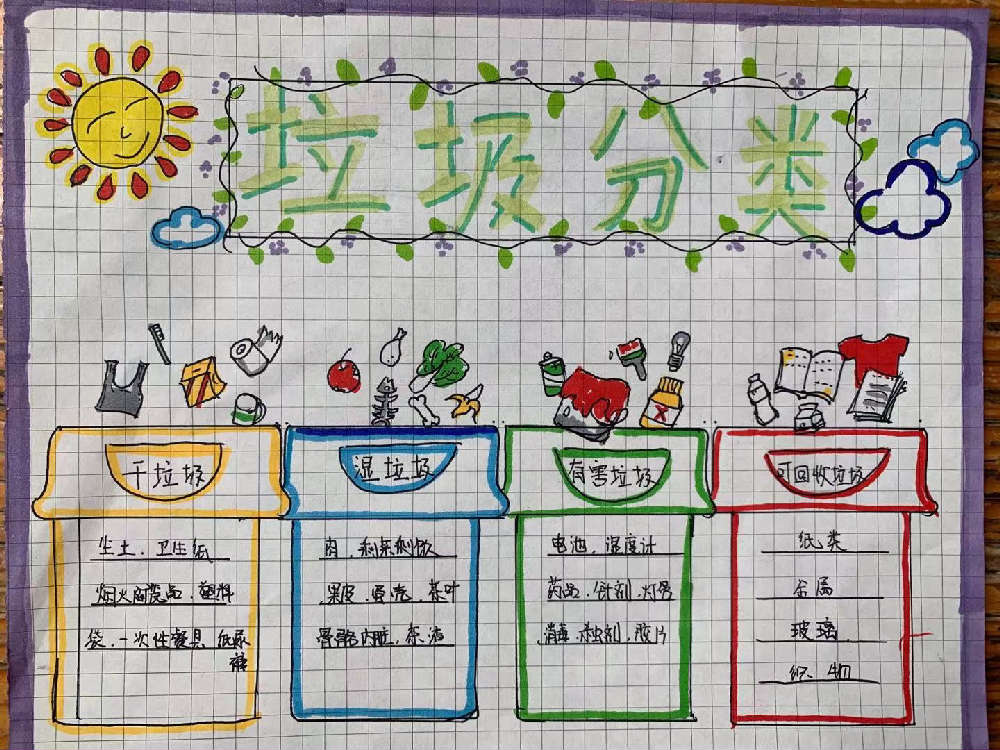 垃圾分类
干垃圾
湿垃圾
有害垃圾
可回收垃圾
尘土、卫生纸
塑料
袋、一次性餐具、纸尿
裤
肉、剩菜剩饭
果皮、蛋壳、茶叶
骨骼内脏、菜渣
电池、温度计
药品、针剂、灯管
消毒、杀虫剂、胶片
纸类
金属
玻璃
织物